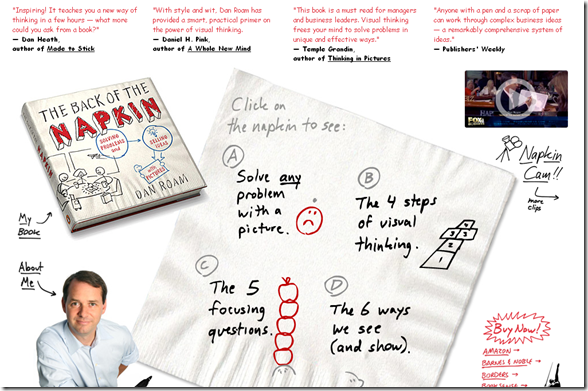 "Inspiring! It teaches you a new way of
thinking in a few hours — what more
could you ask from a book?"
— Dan Heath,
author of Made to Stick
"With style and wit, Dan Roam has
provided a smart, practical primer on
the power of visual thinking.
— Daniel H. Pink,
author of A Whole New Mind
"This book is a must read for managers
and business leaders. Visual thinking
frees your mind to solve problems in
unique and effective ways."
— Temple Grandin,
author of Thinking in Pictures
"Anyone with a pen and a scrap of paper
can work through complex business ideas
— a remarkably comprehensive system of
ideas."
— Publishers' Weekly
THE BACK OF THE
NAPKIN
SOLVING
PROBLEMS AND
SELLING
IDEAS
WITH PICTURES
DAN ROAM
NAPKIN
My
Book
About
Me
Click on
the napkin to see:
A
Solve any
problem
with a
picture.
B
The 4 steps
of visual
thinking.
1
2
3 3
4
C
The 5
focusing
questions.
D
The 6 ways
we see
(and show).
FOX
Napkin
Cam!!
more
clips
Buy Now!
AMAZON
BARNES & NOBLE
BORDERS